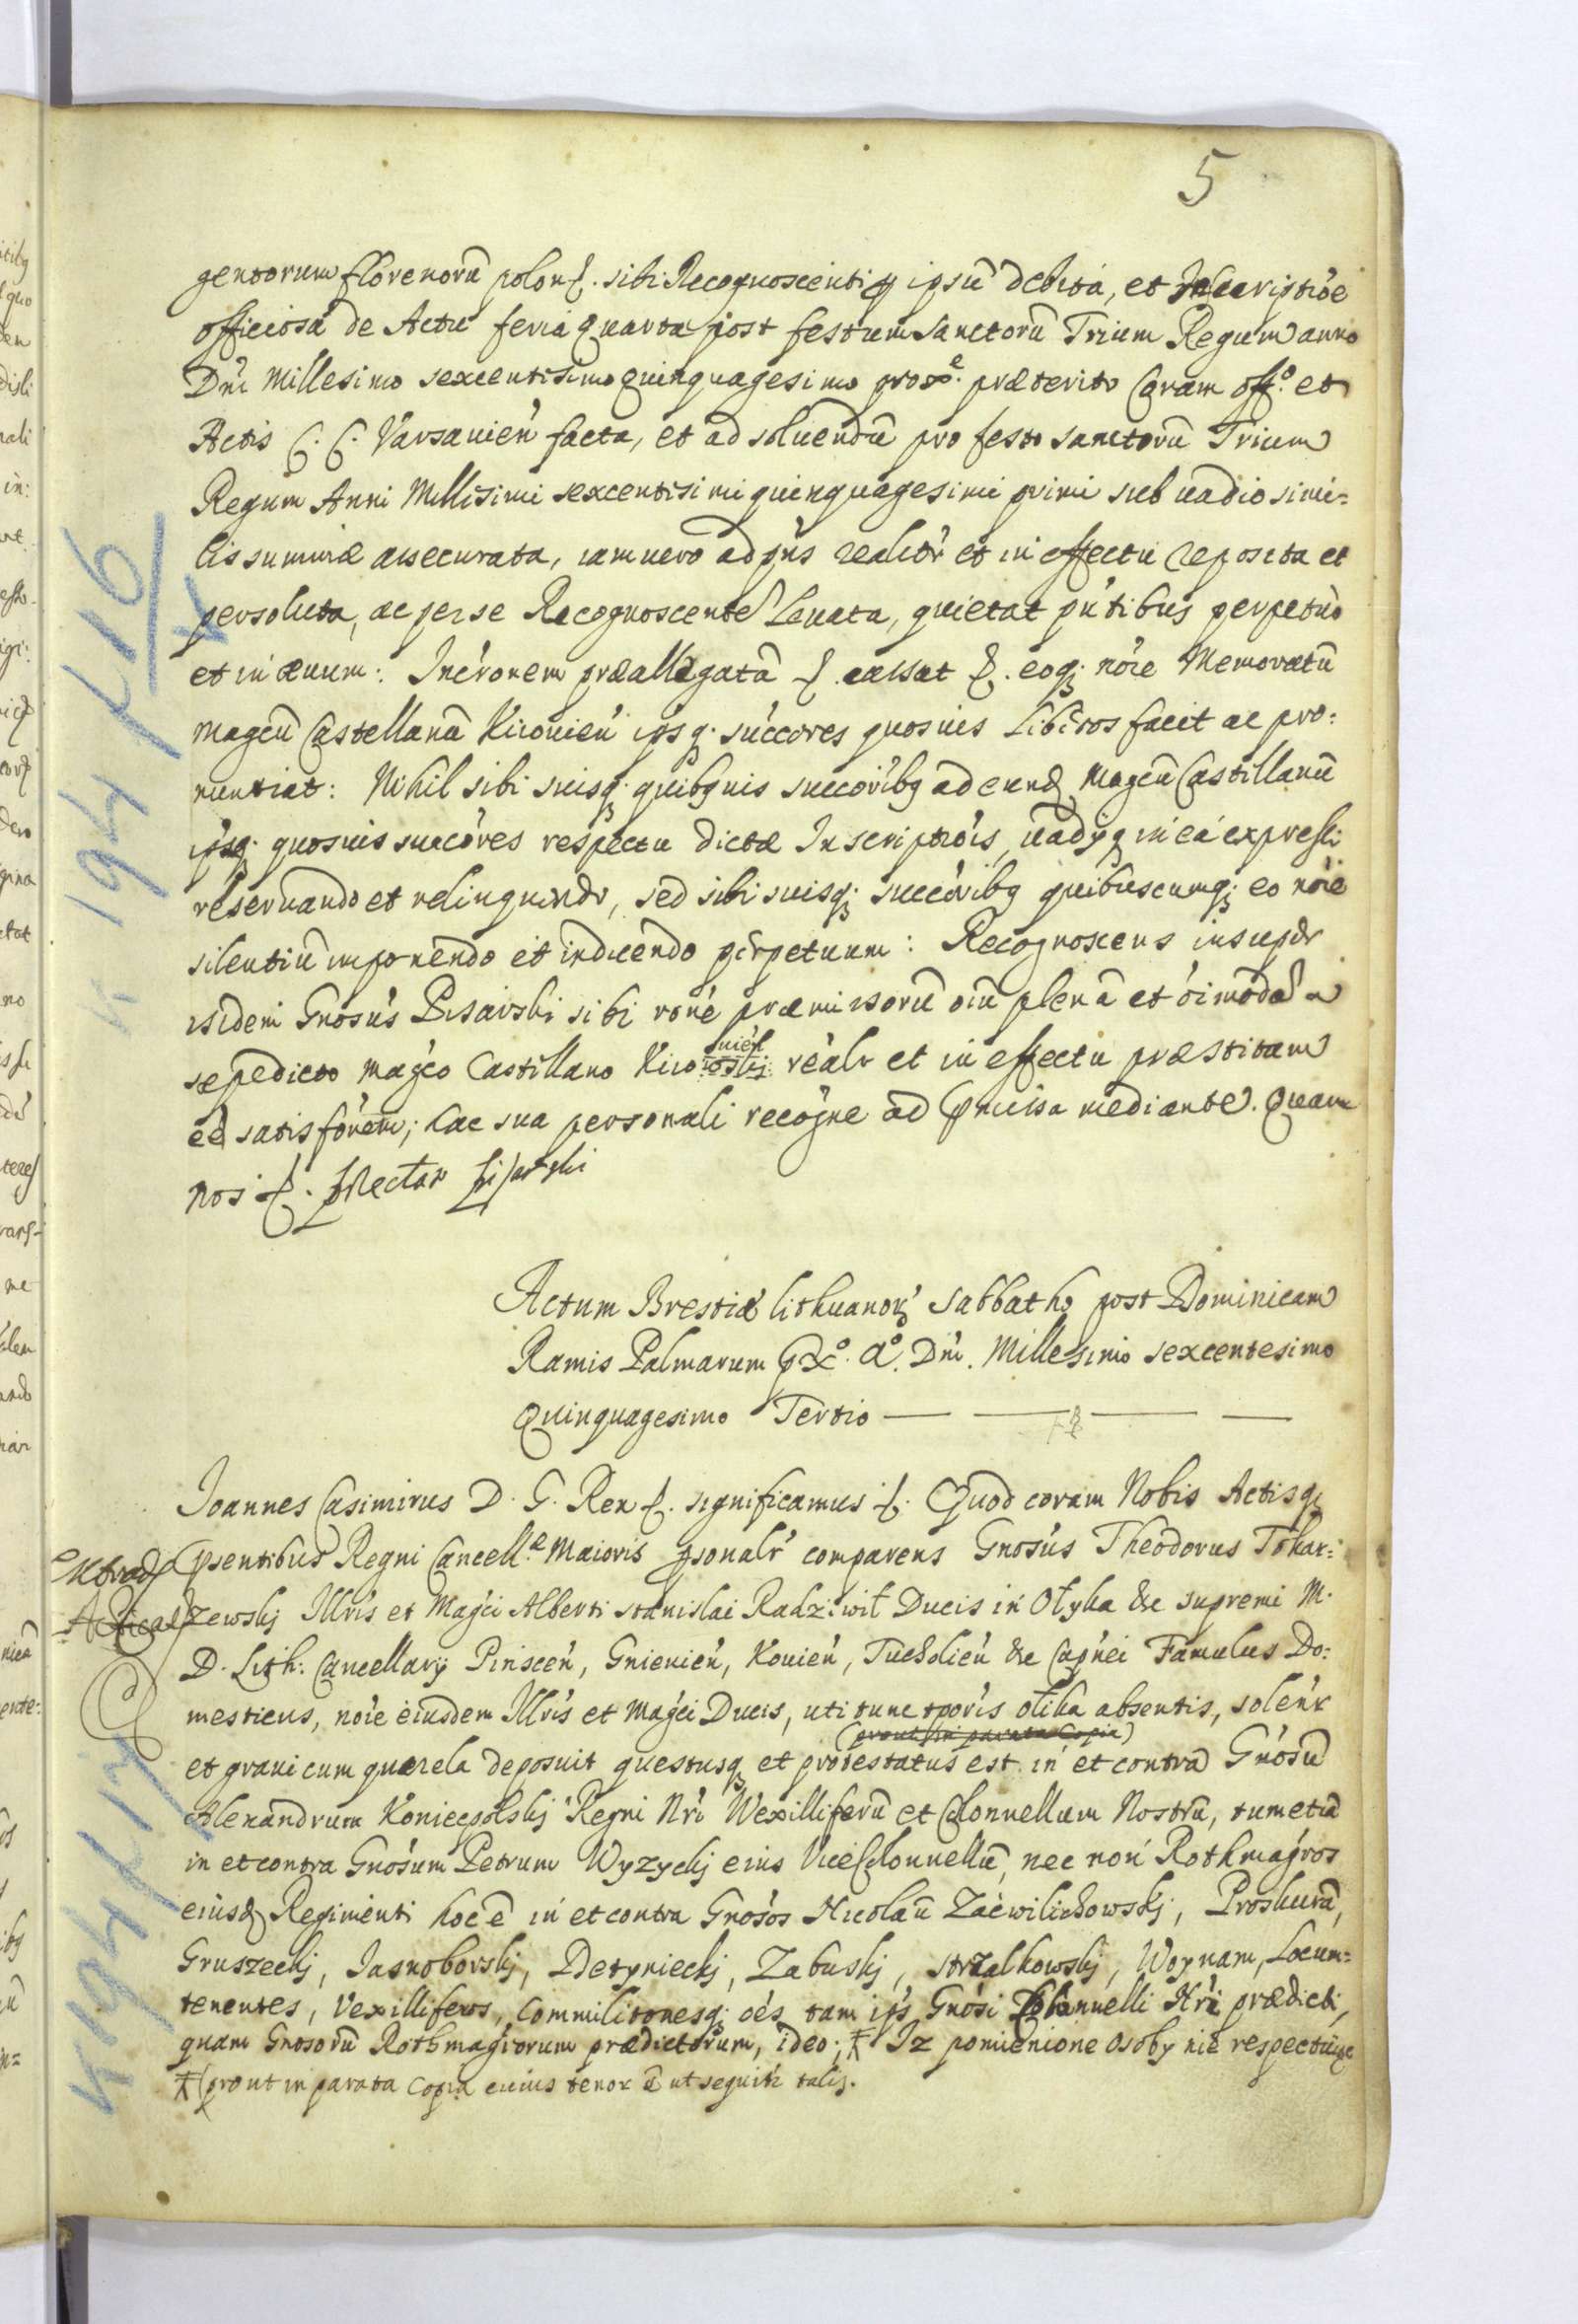 5
gentorum florenorū polon. sibi Recognoscenti ꝑ ipsū debita, et Inscriptiōe
officiosa de Actu feria Quarta post festum Sanctorū Trium Regum anno
Dni Millesimo sexcentisimo Quinquagesimo prox̃e. præterito Coram off.o et
Actis C. C. Varsavien facta, et ad soluendū pro festo sanctorū Trium
Regum Anni Millisimi sexcentisimi quinquagesimi primi sub uadio simi=
lis summæ assecurata, iam uero ad pñs realitr et in effectu reposita et
persoluta, ac per se Recognoscentẽ Leuata, quietat pñtibus perpetuò
et in æuum: Incronem præallegatā cassat eoq; noie Memoratū
Magcū Castellanū Kiiouien ipsq; succores quosuis Liberos facit ac pro=
nuntiat: Nihil sibi suisq; quibusuis succoribꝫ ad eund Magcū Castillanū
ipsq; quosuis succores respectu dictæ Inscriptiois, uadijq in ea expressi
reseruando et relinquendo, sed sibi suisq; succoribꝫ quibuscumq; eo noie
silentiū imponendo et indicendo perpetuum: Recognoscens insuper
isidem Gnosus Pisarski sibi rone præmissorū oiū plenā et oimodā a
sæpedicto magco Castillano Kiio oskj uien realr et in effectu præstitam
eē satisfonem; hac sua personali recogne ad pmissa mediante. Quam
nos Hectar Pisarski
Actum Brestiæ lithuanoꝝ Sabbatho post Dominicam
Ramis Palmarum px̃o. Ao. Dni. Millesimo sexcentesimo
Quinquagesimo Tertio
Joannes Casimirus D. G. Rex significamus Quod coram Nobis Actisq;
psentibus Regni Cancell.æ Maioris psonalr comparens Gnosus Theodorus Tokar=
zewskj Illris et Magci Alberti Stanislai Radziwił Ducis in Ołyka &c supremi M.
D. Lith: Cancellarij Pinscen, Gnieuien, Kouien, Tucholien &c Capnei Famulus Do=
mesticus, noie eiusdem Illris et Magci Ducis, uti tunc tporis ab absentis, solenr
(prout in parata Copia)
et graui cum quærela deposuit questusq; et protestatus est in et contra Gnosū
Alexandrum Koniecpolskj Regni Nri Wexilliferū et Colonnellum Nostrū, tum etiā
in et contra Gnosum Petrum Wyzyckj eius ViceColonnellū, nec non Rothmagros
eiusd Regimenti hoc ē in et contra Gnosos Nicolaū Zaćwilichowskj, Proskurā,
Gruszeckj, Jasnoborskj, Detynieckj, Zabuskj, Strzalkowskj, Woynam, Locum=
tenentes, Vexilliferos, Commilitonesq; oēs tam ips Gnosi Colonnelli Nri prædicti,
quam Gnosorū Rothmagrorum prædictorum, ideo; Iz pomienione osoby nie respectuiąc
(prout in parata Copia cuius tenor ē ut sequitr talis.
Actical
K 194 K 16
K 194 K 17